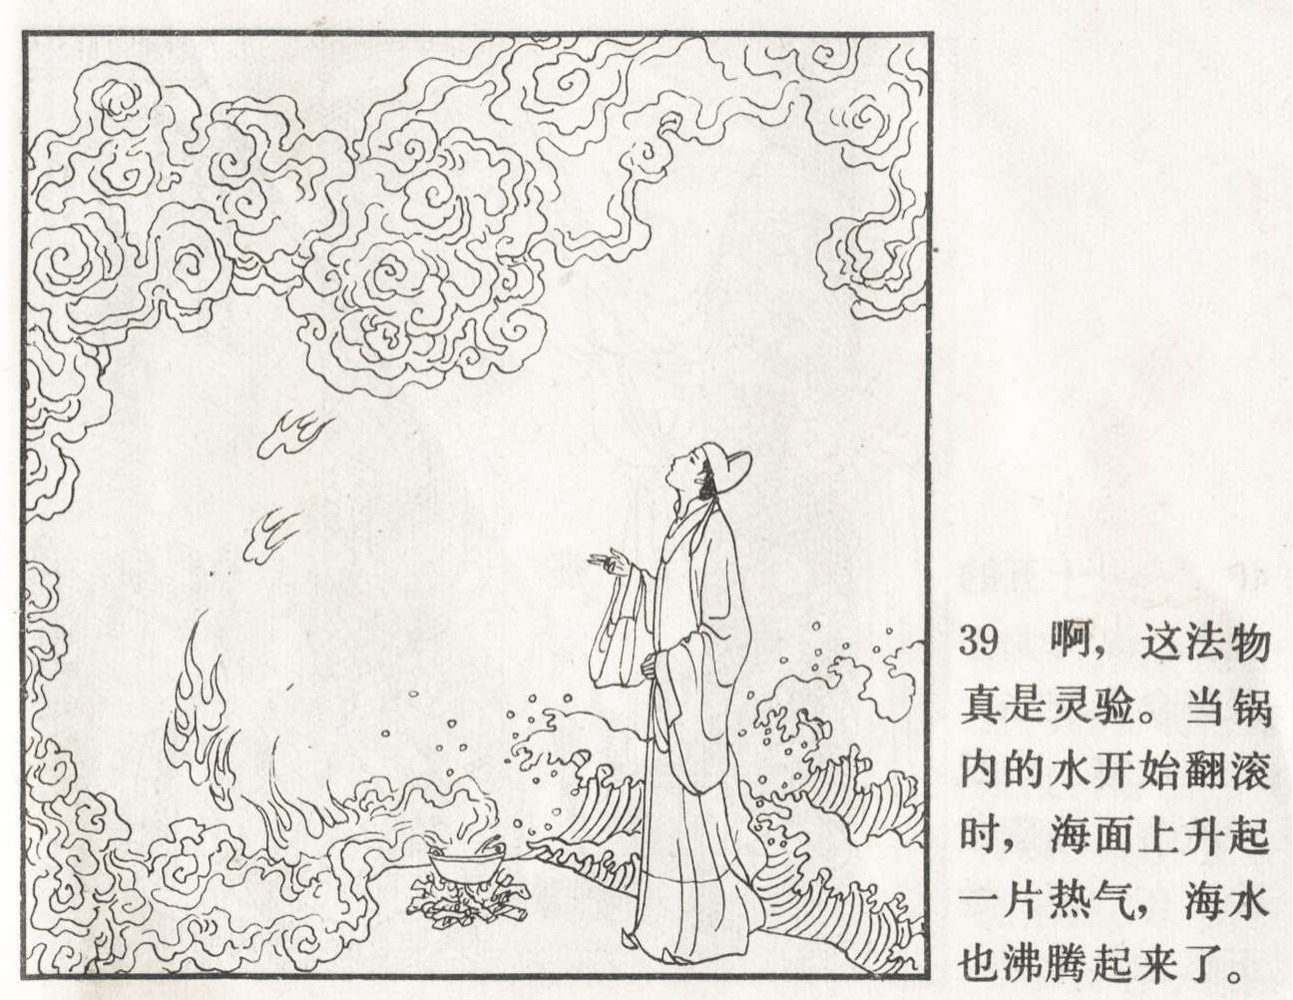 39 啊，这法物
真是灵验。当锅
内的水开始翻滚
时，海面上升起
一片热气，海水
也沸腾起来了。